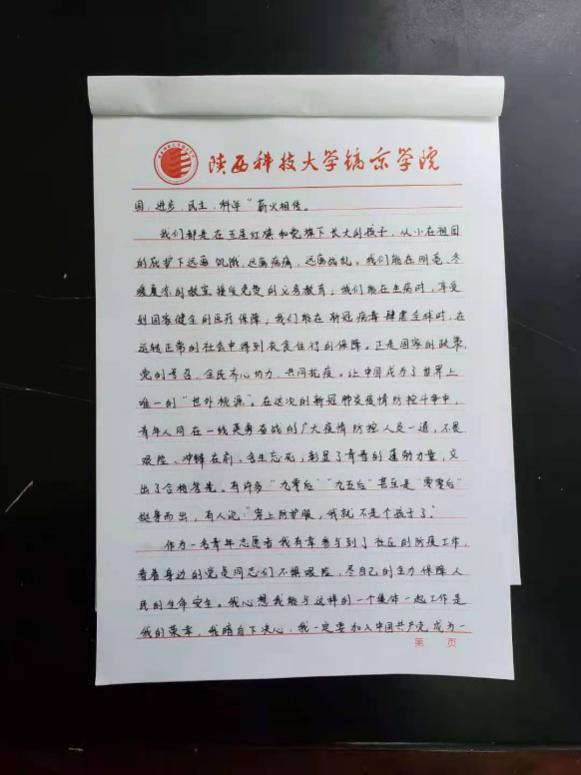 陕西科技大学镐京学院
国、进步、民主、科学”薪火相传。
我们都是在五星红旗和党旗下长大的孩子，从小在祖国
的庇护下远离饥饿、远离病痛、远离战乱。我们能在明亮、冬
暖夏凉的教室接受免费的义务教育；我们能在患病时，享受
到国家健全的医疗保障；我们能在新冠病毒肆虐全球时，在
运转正常的社会中得到衣食住行的保障。正是国家的政策，
党的号召，全民齐心协力，共同抗疫。让中国成为了世界上
唯一的“世外桃源”。在这次的新冠肺炎疫情防控斗争中，
青年人同在一线英勇奋战的广大疫情防控人员一道，不畏
艰险、冲锋在前、舍生忘死，彰显了青春的蓬勃力量，交
出了合格答卷。有许多“九零后”“九五后”甚至是“零零后”
挺身而出，有人说：“穿上防护服，我就不是个孩子了。”
作为一名青年志愿者我有幸参与到了社区的防疫工作，
看着身边的党员同志们不惧艰险，尽自己的全力保障人
民的生命安全。我心想我能与这样的一个集体一起工作是
我的荣幸，我暗自下决心，我一定要加入中国共产党，成为一
第 页